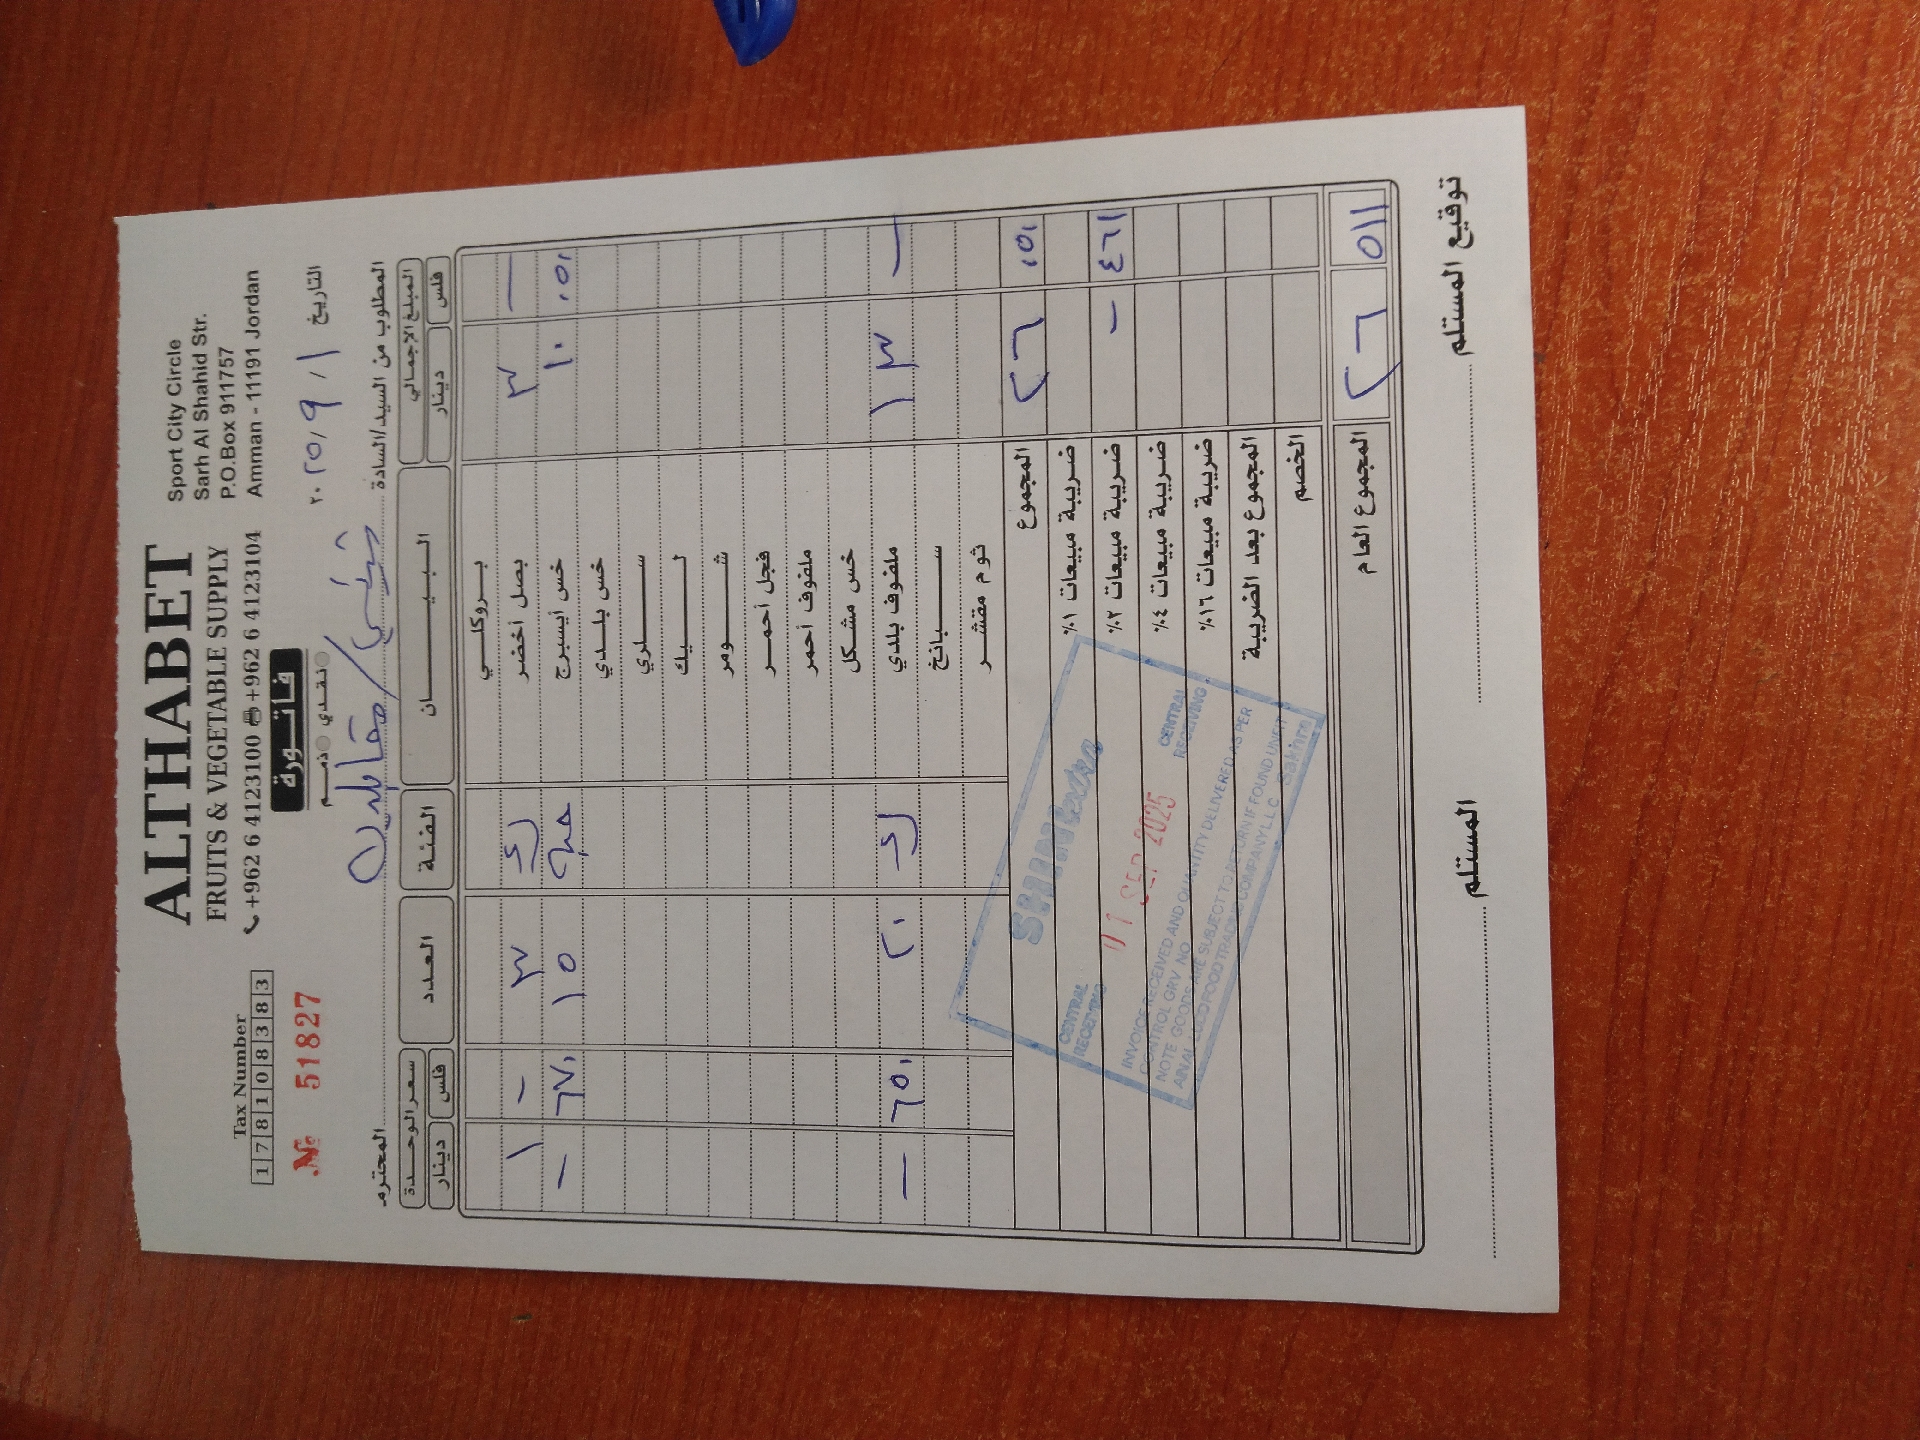 ALTHABET
FRUITS & VEGETABLE SUPPLY
+962 6 4123100 +962 6 4123104
Sport City Circle
Sarh Al Shahid Str.
P.O.Box 911757
Amman - 11191 Jordan
Tax Number
178108383
№ 51827
فاتورة
نقدي ذمم
التاريخ ١ / ٩ / ٢٠٢٥
المطلوب من السيد/السادة المحترم
المبلغ الإجمالي البيــــان الفئة العدد سعر الوحدة
فلس دينار فلس دينار
بروكلي
— ٣ بصل أخضر ٣ - ١
٠٥٠ ١٠ خس أيسبرج حبه ١٥ ٦٧٠ -
خس بلدي
ســــلري
لــــيك
شــــومر
فجل أحمر
ملفوف أحمر
خس مشكل
— ١٣ ملفوف بلدي ٢٠ ٦٥٠ —
ســــبانخ
ثوم مقشر
٠٥٠ ٢٦ المجموع
ضريبة مبيعات ١%
٤٦١ - ضريبة مبيعات ٢%
ضريبة مبيعات ٤%
ضريبة مبيعات ١٦%
المجموع بعد الضريبة
الخصم
٥١١ ٢٦ المجموع العام
CENTRAL RECEIVING
CENTRAL RECEIVING
01 SEP 2025
INVOICE RECEIVED AND QUANTITY DELIVERED AS PER
CONTROL GRV NO
NOTE GOODS ARE SUBJECT TO RETURN IF FOUND UNFIT
توقيع المستلم
المستلم